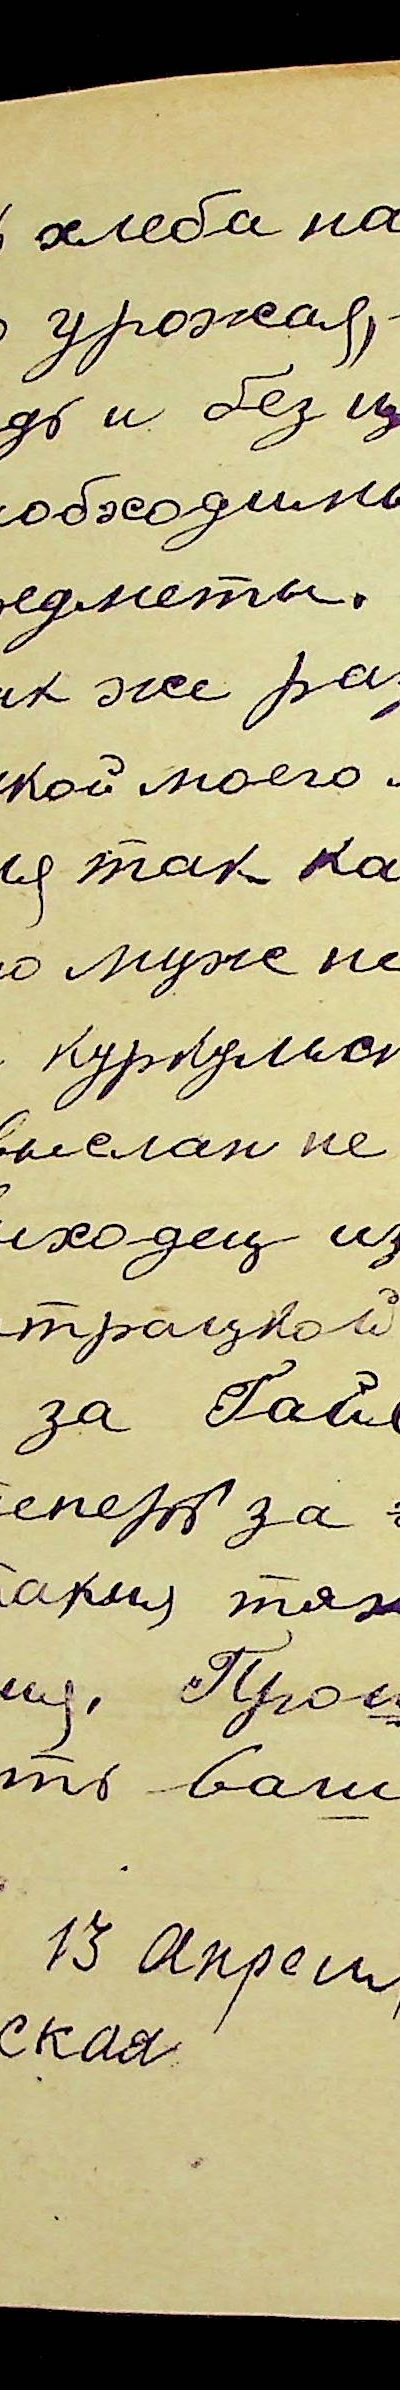 ь хлеба на
о урожая,
дь и без
необходимы
редметы.
ак же раз
кой моего
ия так ка
то муже не
куркульск
выслан не
выходец из
трацкой
за Гайв
теперь за
такия тяж
ия. Прош
ть ваш
13 Апреля
ская